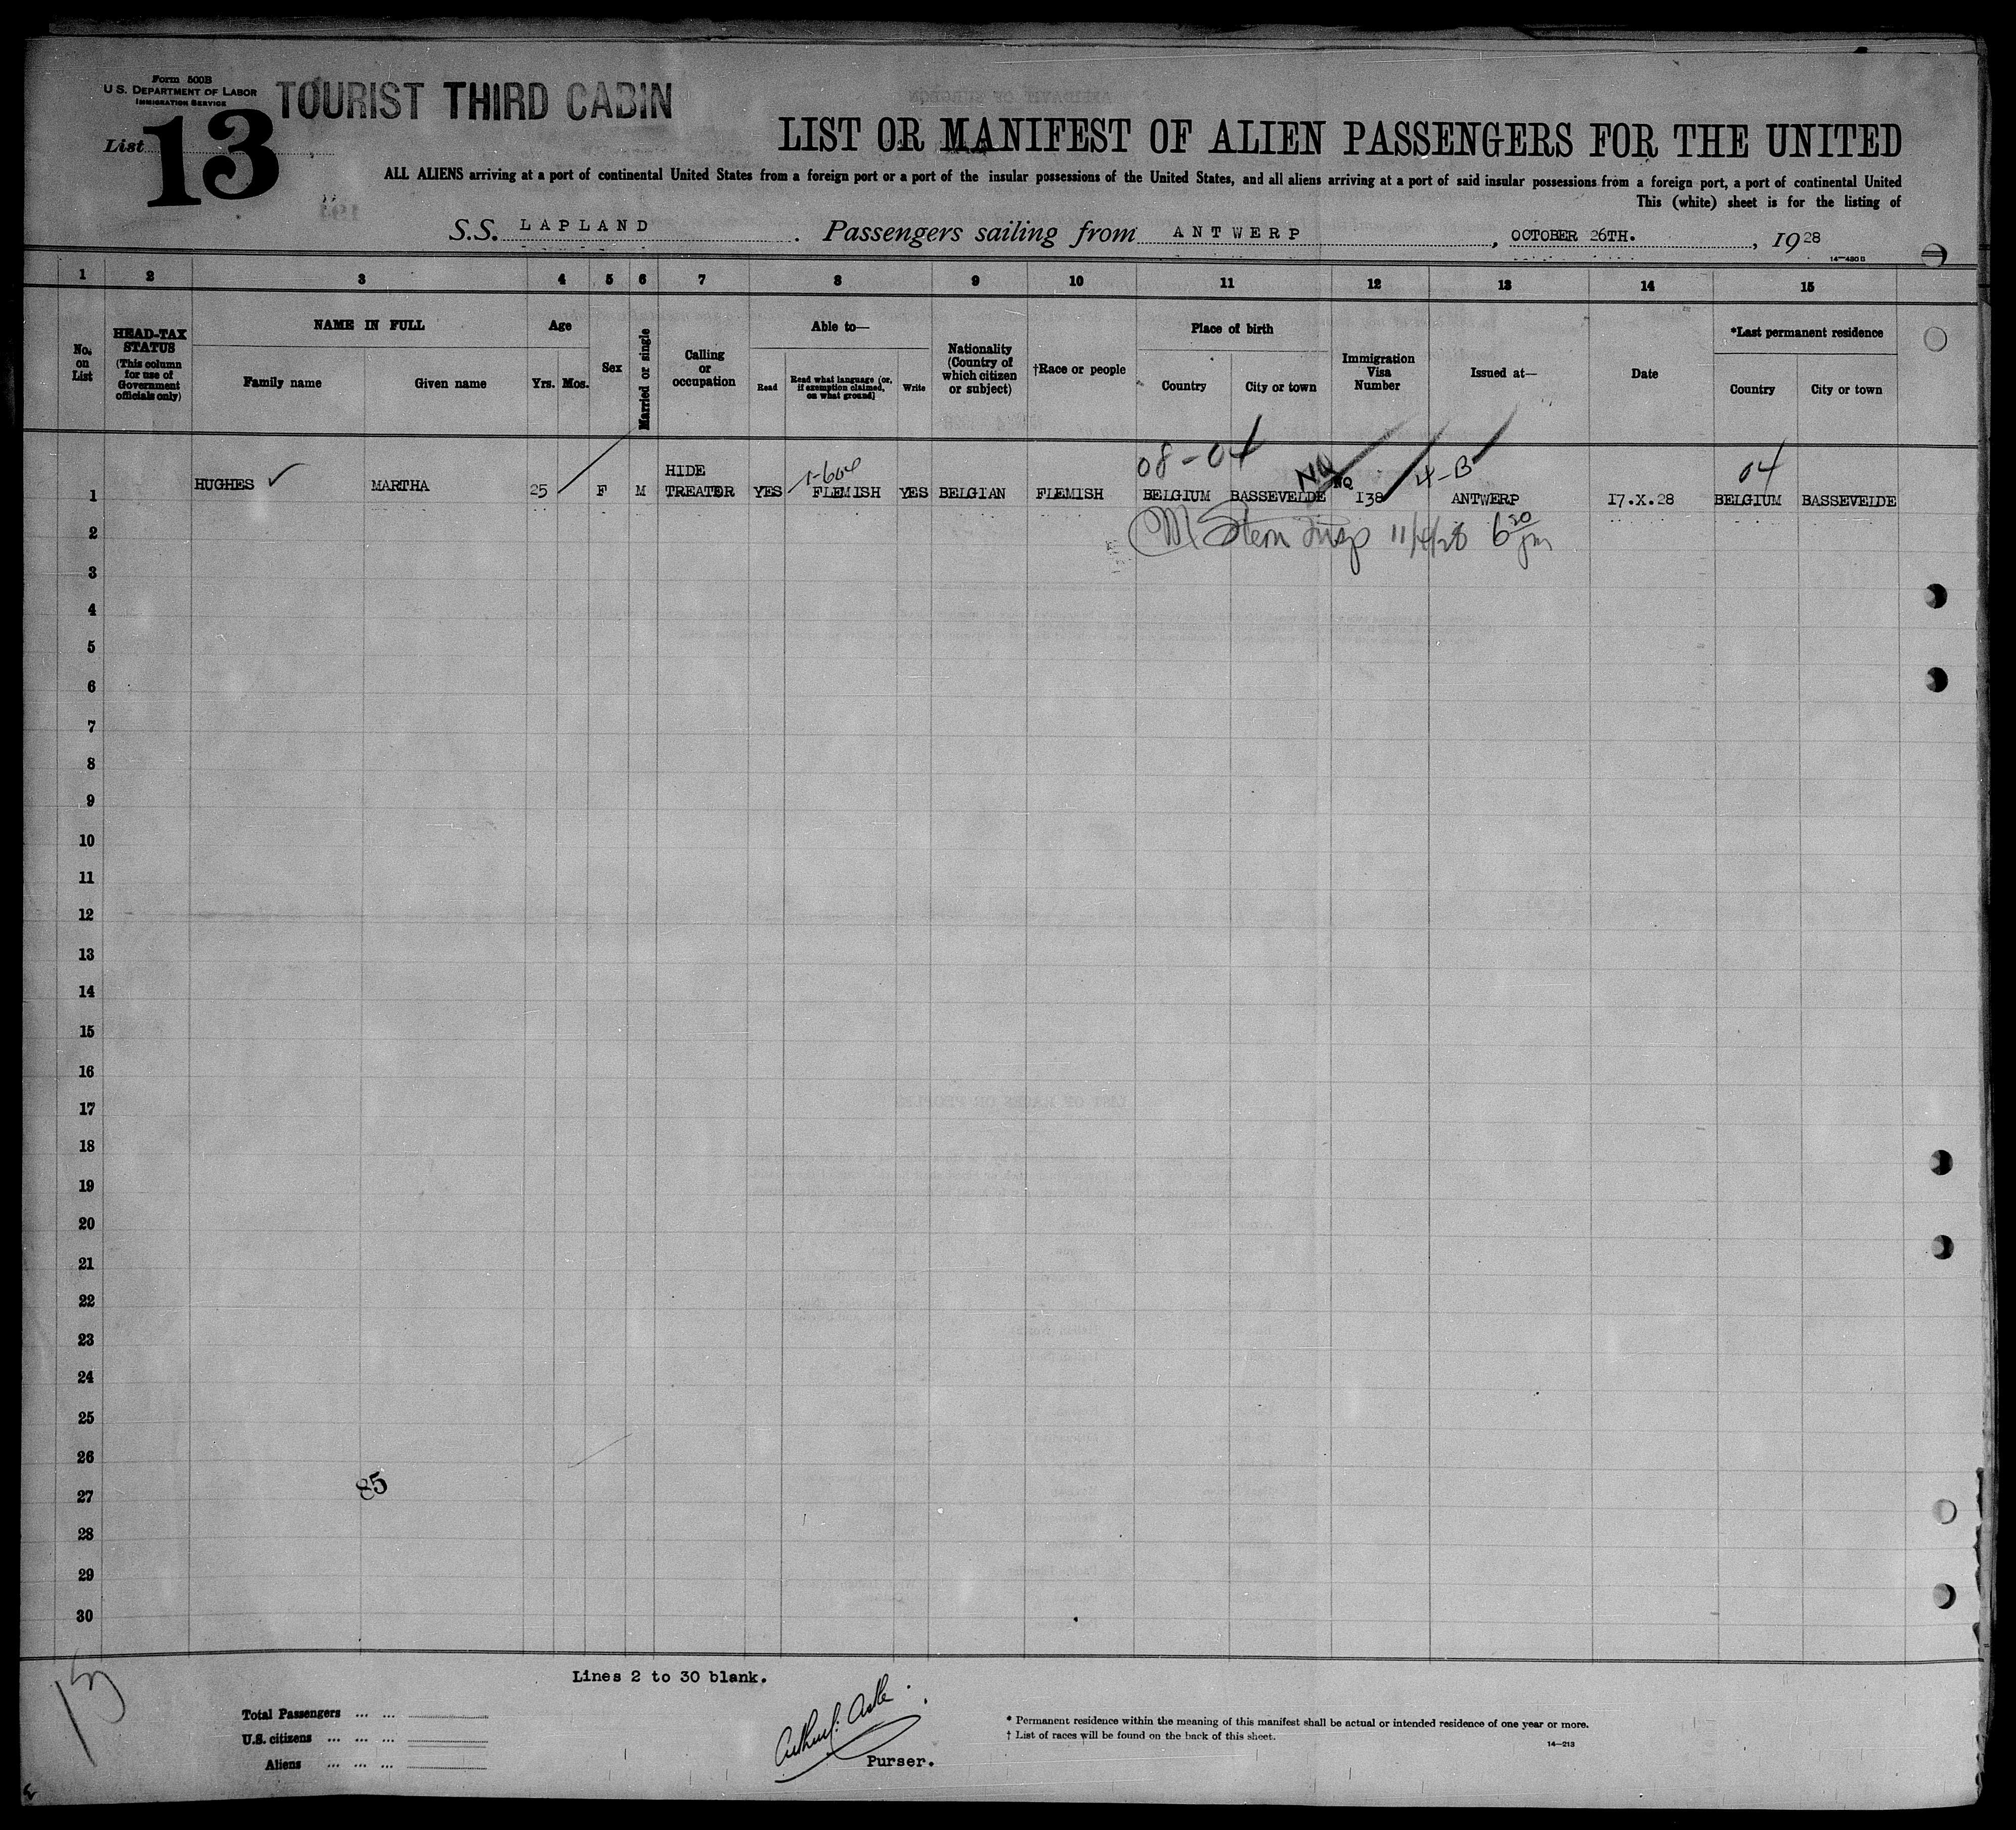 Form 500B
U.S. DEPARTMENT OF LABOR
IMMIGRATION SERVICE
TOURIST THIRD CABIN
List 13
LIST OR MANIFEST OF ALIEN PASSENGERS FOR THE UNITED
ALL ALIENS arriving at a port of continental United States from a foreign port or a port of the insular possessions of the United States, and all aliens arriving at a port of said insular possessions from a foreign port, a port of continental United
This (white) sheet is for the listing of
S.S. LAPLAND. Passengers sailing from ANTWERP, OCTOBER 26TH., 1928
14-480 B
1 2 3 4 5 6 7 8 9 10 11 12 13 14 15
No. on List
HEAD-TAX STATUS (This column for use of Government officials only)
NAME IN FULL
Family name Given name
Age
Yrs. Mos.
Sex
Married or single
Calling or occupation
Able to—
Read
Read what language (or, if exemption claimed, on what ground)
Write
Nationality (Country of which citizen or subject)
†Race or people
Place of birth
Country City or town
Immigration Visa Number
Issued at—
Date
*Last permanent residence
Country City or town
08-04 NQ 4-B 04
1-604
1 HUGHES ✓ MARTHA 25 F M HIDE TREATER YES FLEMISH YES BELGIAN FLEMISH BELGIUM BASSEVELDE NQ 138 ANTWERP 17.X.28 BELGIUM BASSEVELDE
M Stern Insp 11/4/28 6 20 pm
2
3
4
5
6
7
8
9
10
11
12
13
14
15
16
17
18
19
20
21
22
23
24
25
26
85
27
28
29
30
Lines 2 to 30 blank.
Total Passengers ... ...
U.S. citizens ... ... ...
Aliens ... ... ...
Purser.
* Permanent residence within the meaning of this manifest shall be actual or intended residence of one year or more.
† List of races will be found on the back of this sheet.
14—213